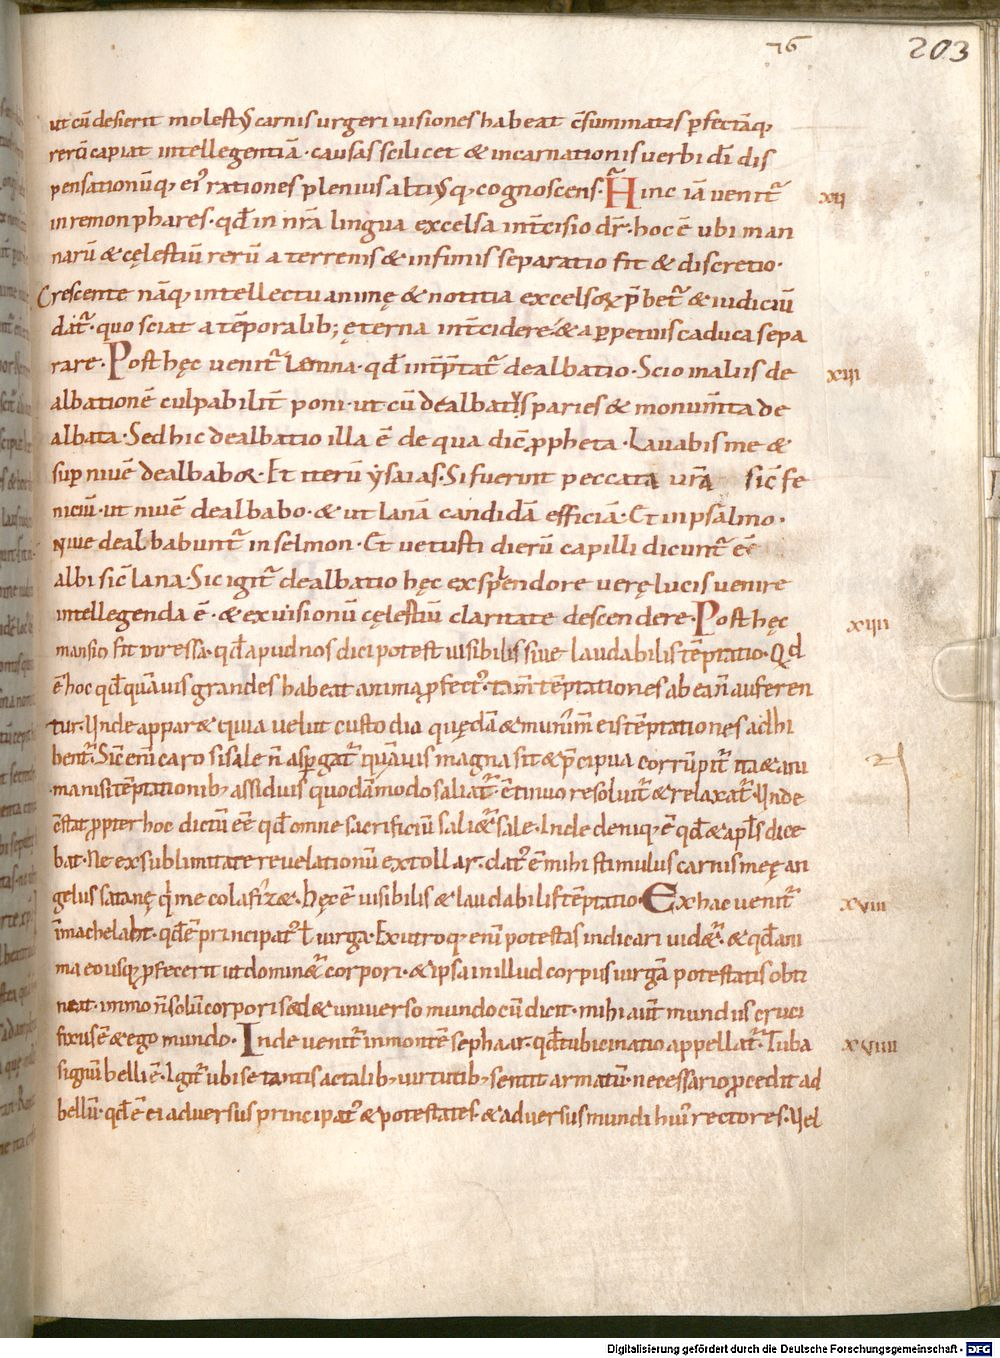 76 203
ut cū desierit molestiis carnis urgeri visiones habeat c̄summatas p̱fectāq;
rerū capiat intellegentiā · causas scilicet & incarnationis verbi dī dis
pensationūq; eiꝰ rationes plenius altiusq; cognoscens · Hinc iā venit̄ xii
in remon phares · qđ in nr̄a lingua excelsa int̄cisio dr̄ · hoc ē ubi mag
narū & cęlestiū rerū a terrenis & infimis separatio fit & discretio ·
Crescente nāq; intellectu animę & notitia excelsoꝝ p̄bet̄ & iudiciū
dat̄ · quo sciat a tēporalib; ęterna int̄cidere & a p̱petuis caduca sepa
rare · Post hęc venit̄ Lemna · qđ int̄p̄tat̄ dealbatio · Scio in aliis de xiii
albationē culpabilit̄ poni · ut cū dealbatus paries & monum̄ta de
albata · Sed hic dealbatio illa ē de qua dic̄ ꝓpheta · Lavabis me &
sup̱ nivē dealbabor · Et iterū ysaias · Si fuerint peccata vr̄a sic̄ fe
niciū · ut nivē dealbabo · & ut lanā candidā efficiā · Et in psalmo ·
Nive dealbabunt̄ in selmon · Et vetusti dierū capilli dicunt̄ eē
albi sic̄ lana · Sic igit̄ dealbatio hęc ex splendore verę lucis venire
intellegenda ē · & ex visionū cęlestiū claritate descendere · Post hęc xiiii
mansio fit in ressa · qđ apud nos dici potest visibilis sive laudabilis tēptatio · Qd
ē hoc qđ quāvis grandes habeat anima ꝓfectꝰ · tam̄ tēptationes ab ea n̄ auferen
tur · Unde appar& quia velut custodia quędā & munim̄ ei tēptationes adhi
bent̄ · Sic̄ eni caro si sale n̄ asp̱gat̄ quāvis magna sit & p̄cipua corrūpit̄ ita & ani
ma nisi tēptationib; assiduis quodāmodo saliat̄ · c̄tinuo resolvit̄ & relaxat̄ · Unde
c̄stat propter hoc dictū eē qđ omne sacrificiū sali&̄ sale · Inde deniq; ē qđ & ap̄ls dice
bat · Ne ex sublimitate revelationū extollar · datꝰ ē mihi stimulus carnis meę an
gelus satanę q̇ me colafiz& · Hęc ē visibilis & laudabilis tēptatio · Ex hac venit̄ xviii
in machelaht · qđ ē principatꝰ ł virga · Ex utroq; enī potestas indicari vid&̄ · & qđ ani
ma eo usq; ꝓfecerit ut domin&̄ corpori · & ipsa in illud corpus virgā potestatis obti
neat · immo n̄ solū corpori sed & universo mundo cū dicit · mihi aut̄ mundus cruci
fixus ē & ego mundo · Inde venit̄ in montē sephaar · qđ tubicinatio appellat̄ · Tuba xviiii
signū belli ē · Igit̄ ubi se tantis ac talib; virtutib; sentit armatū · necessario ꝓcedit ad
bellū · qđ ē ei adversus principatꝰ & potestates · & adversus mundi huiꝰ rectores · Vel
Digitalisierung gefördert durch die Deutsche Forschungsgemeinschaft - DFG